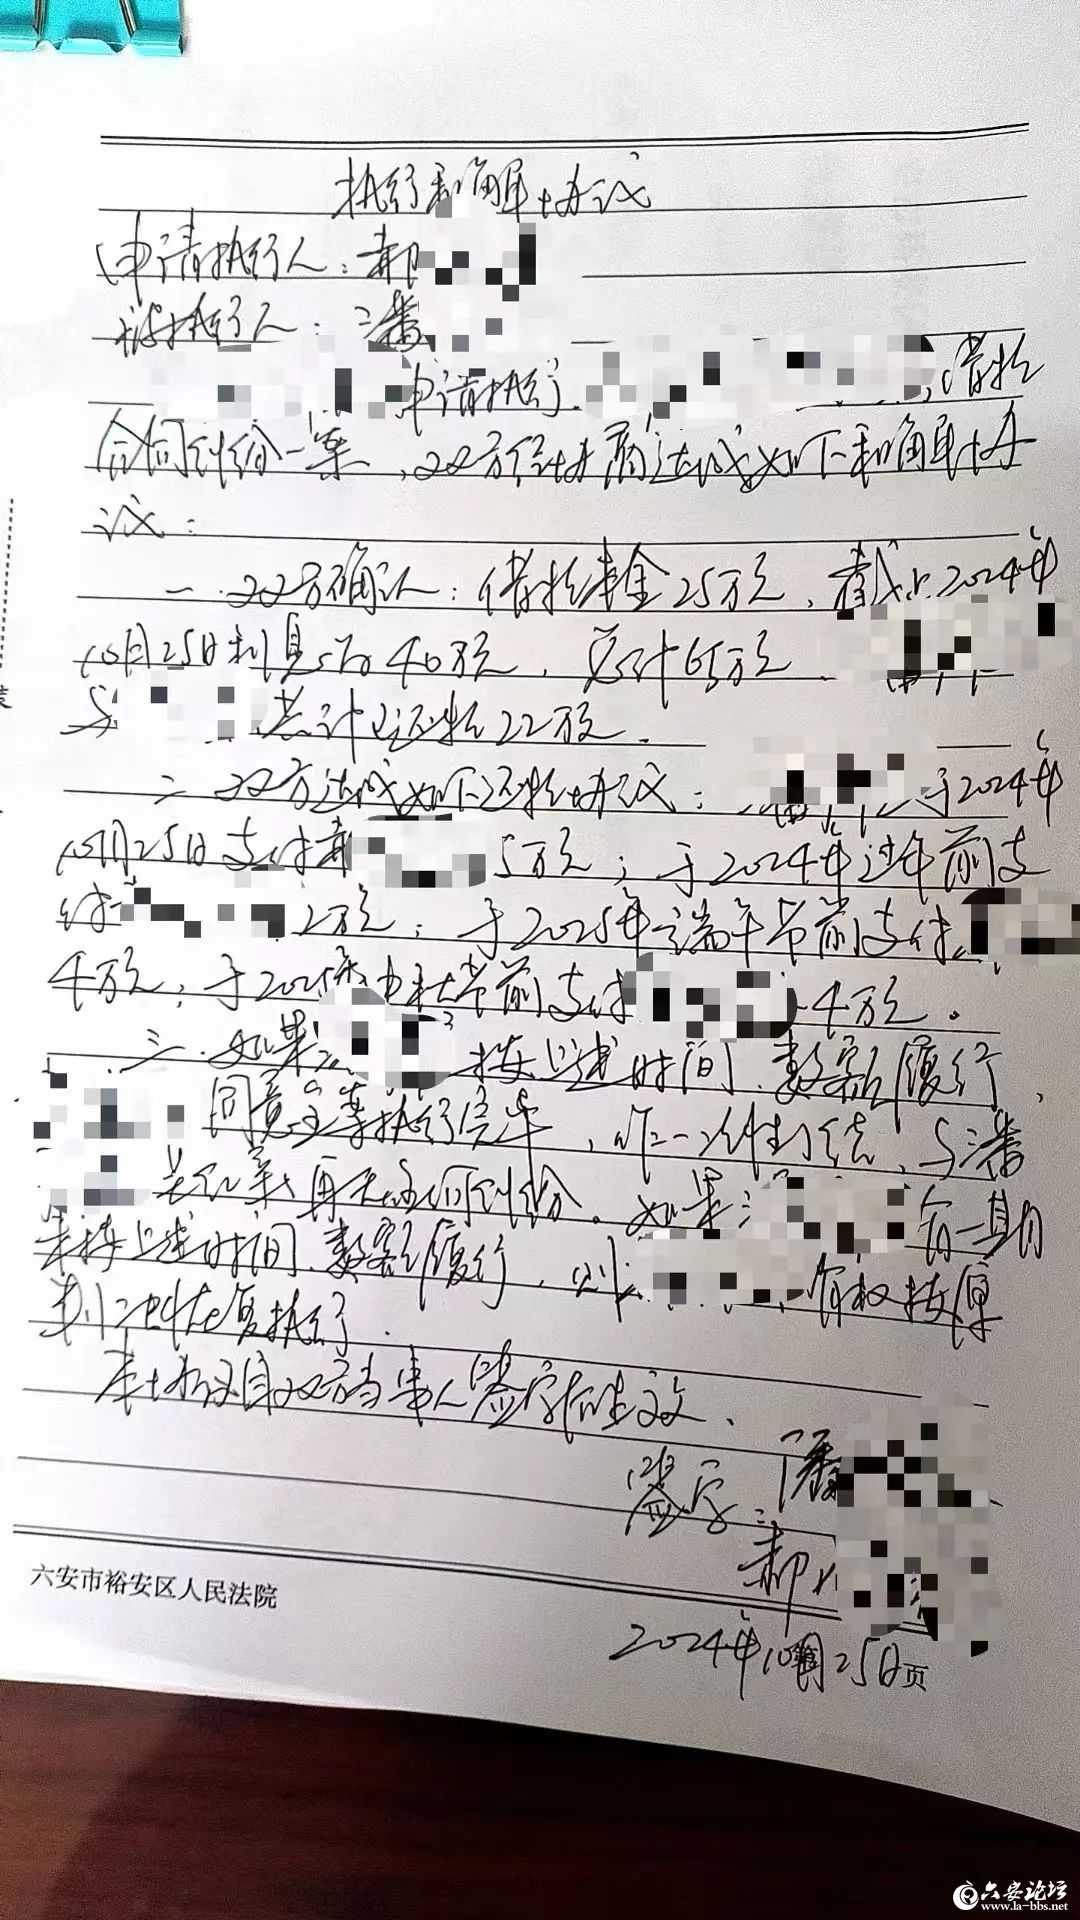 执行和解协议
申请执行人：郝
被执行人：潘
申请执行 ，借款
合同纠纷一案，双方经协商达成如下和解协
议：
一、双方确认：借款本金25万元，截止2024年
10月25日利息为40万元，总计65万元、
与 共计还款22万元、
二、双方达成如下还款协议： 于2024年
10月25日支付郝 5万元；于2024年过年前支
付 2万元；于2025年端午节前支付
4万元；于2025年中秋节前支付 4万元。
三、如果潘 按上述时间、数额履行，
同意全案执行完毕，作一次性了结，与潘
再无任何纠纷。如果潘 有一期
未按上述时间、数额履行，则 有权按原
判决恢复执行、
本协议自双方当事人签字后生效、
签字：潘
郝
六安市裕安区人民法院
2024年10月25日页
六安论坛
www.la-bbs.net